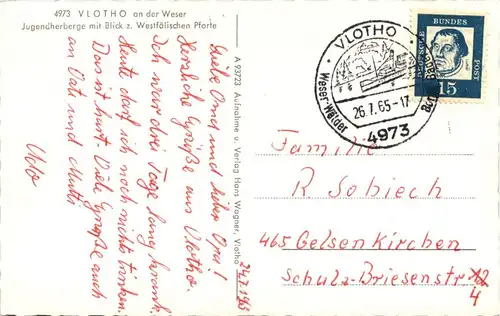 4973 VLOTHO an der Weser
Jugendherberge mit Blick z. Westfälischen Pforte
Liebe Oma und lieber Opa!
Herzliche Grüße aus Vlotho.
Ich war drei Tage lang krank.
Heute darf ich noch nichts trinken.
Das ist hart. Viele Grüße auch
an Vati und Mutti
Udo
24.7.1965
A 93723 Aufnahme u. Verlag Hans Wagner, Vlotho
VLOTHO
Weser Wälder
26.7.65-17
4973
DEUTSCHE BUNDESPOST
15
Familie
R Sobiech
465 Gelsenkirchen
Schulz-Briesenstr
4